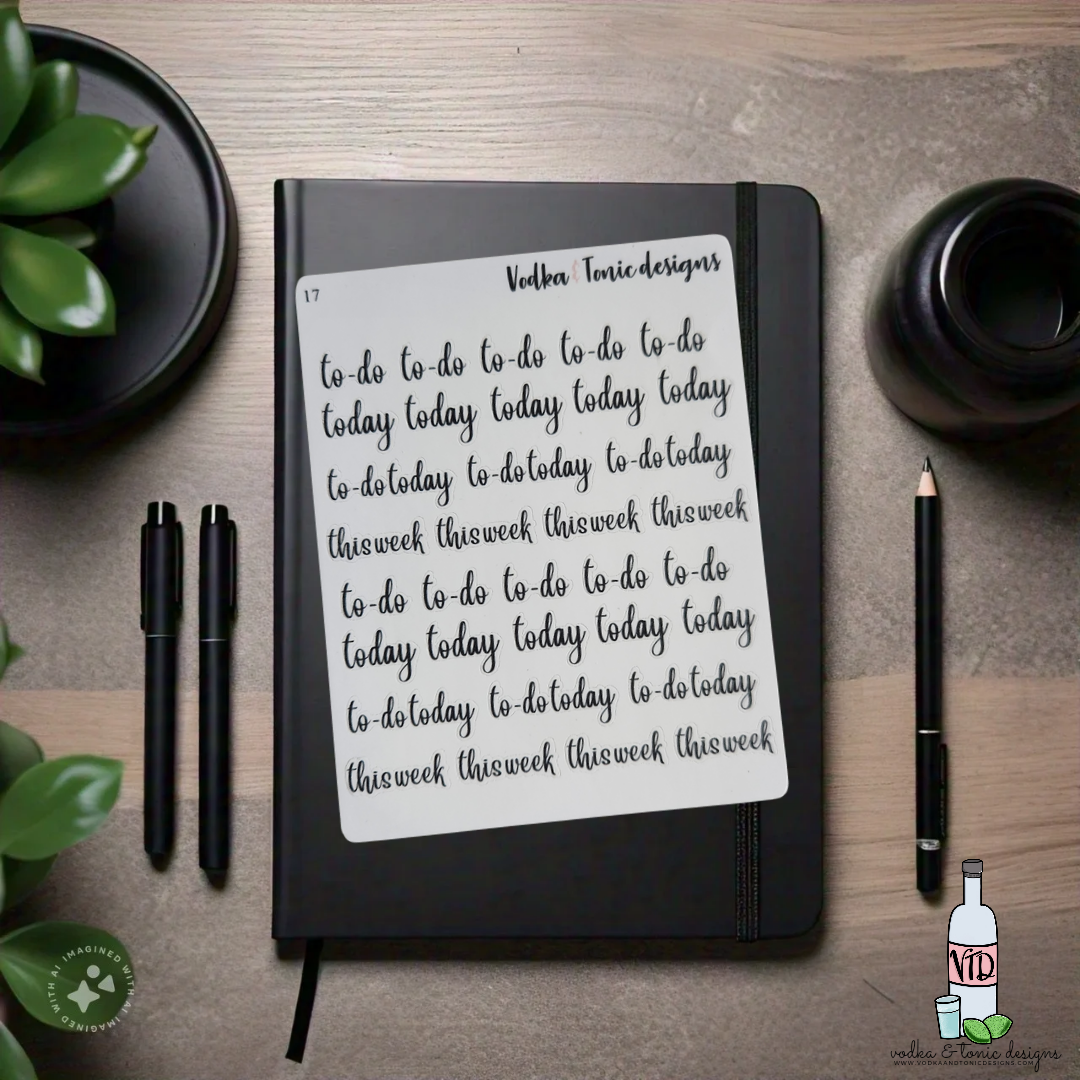 Vodka & Tonic designs
17
to-do to-do to-do to-do to-do
today today today today today
to-do today to-do today to-do today
this week this week this week this week
to-do to-do to-do to-do to-do
today today today today today
to-do today to-do today to-do today
this week this week this week this week
IMAGINED WITH AI IMAGINED WITH AI
VTD
vodka & tonic designs
WWW.VODKAANDTONICDESIGNS.COM